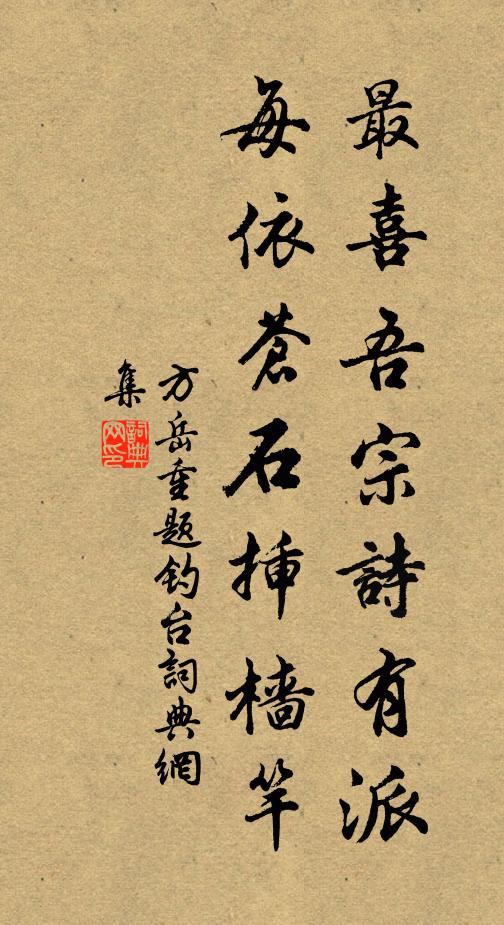 最喜吾宗詩有派
每依蒼石挿檣竿
方岳重題釣台詞典網
集
詞典
网印